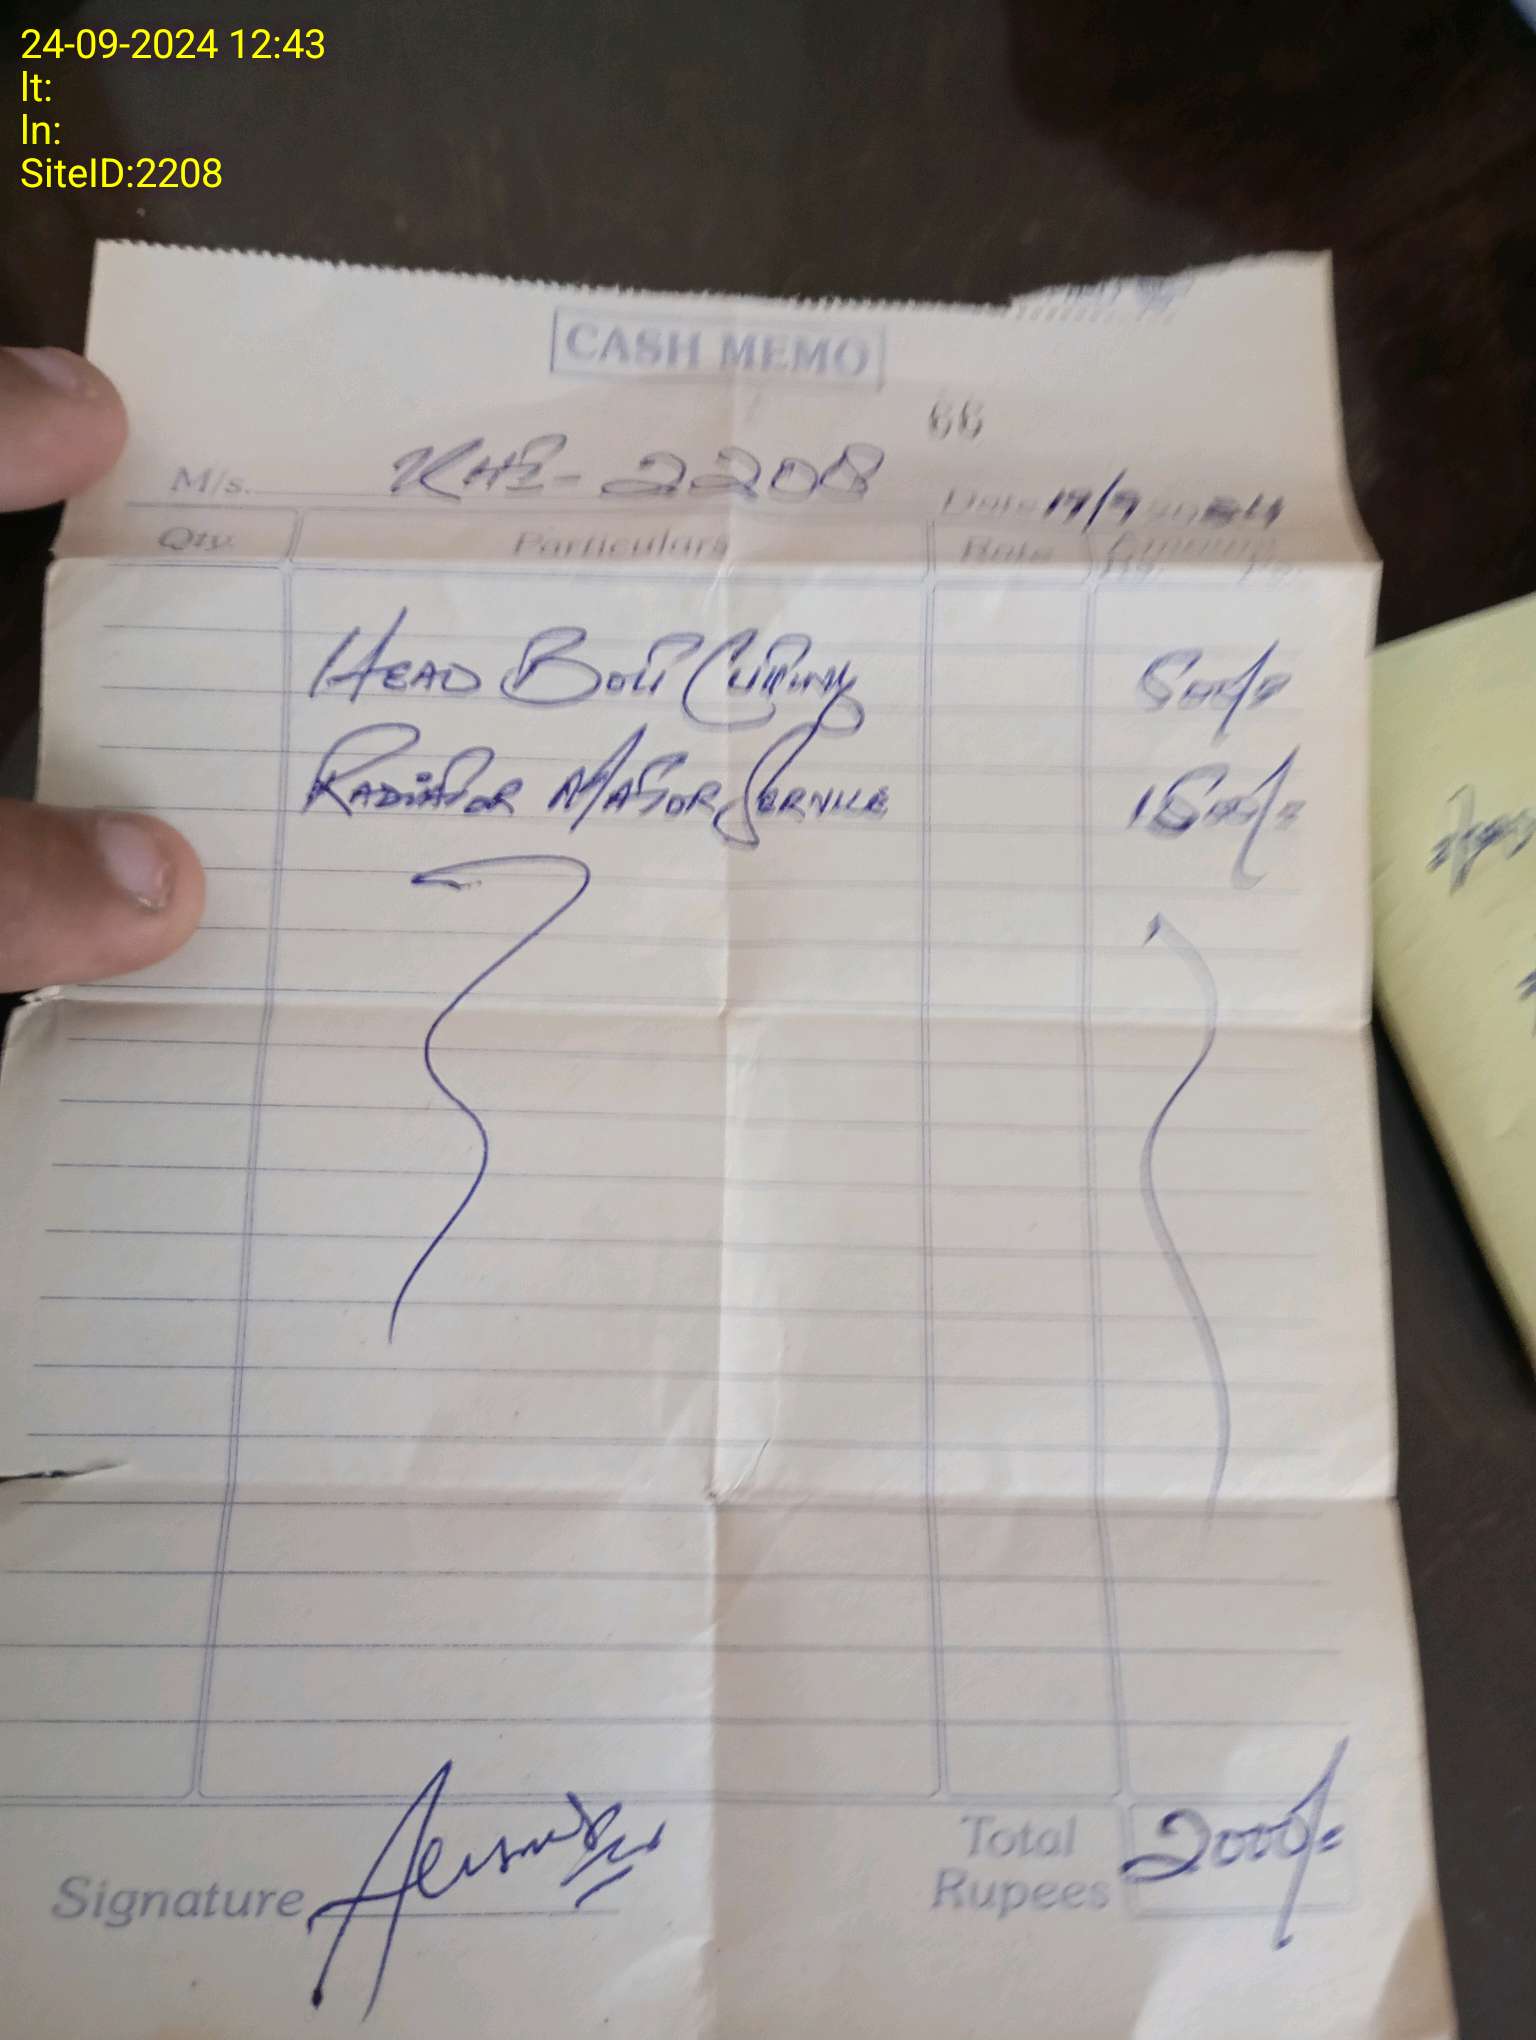 24-09-2024 12:43
lt:
ln:
SiteID:2208
CASH MEMO
66
M/s. KHI-2208 Date 17/9 2024
Qty. Particulars Rate Amount
Rs. Ps.
HEAD BOLT CUTING 500/=
RADIATOR MAJOR SERVICE 1500/=
Total
Signature Rupees 2000/=